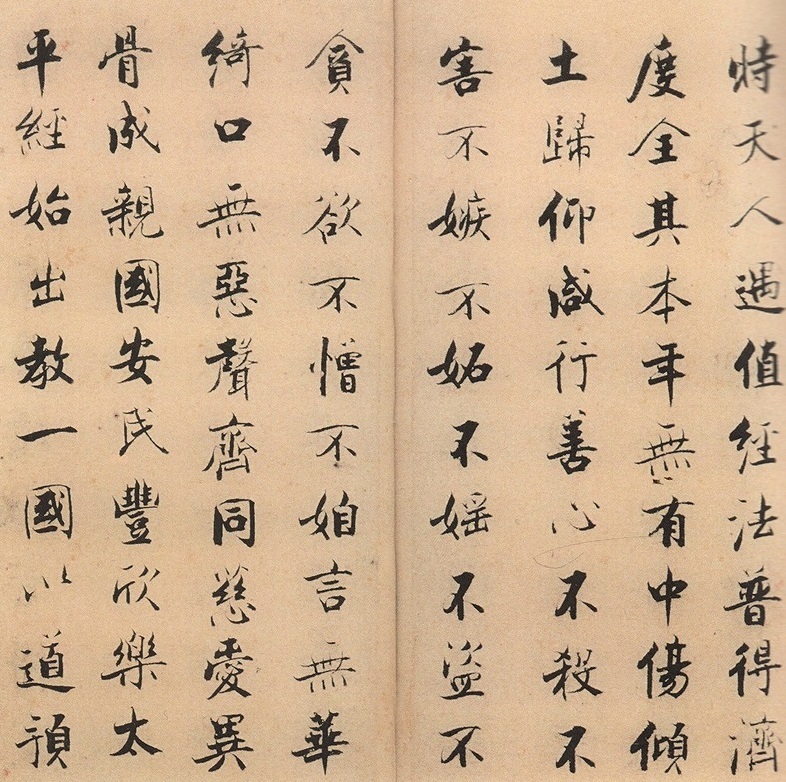 時天人遇值經法普得濟
度全其本年無有中傷傾
土歸仰咸行善心不殺不
害不嫉不妬不婬不盜不
貪不欲不憎不㛂言無華
綺口無惡聲齊同慈愛異
骨成親國安民豐欣樂太
平經始出教一國以道預